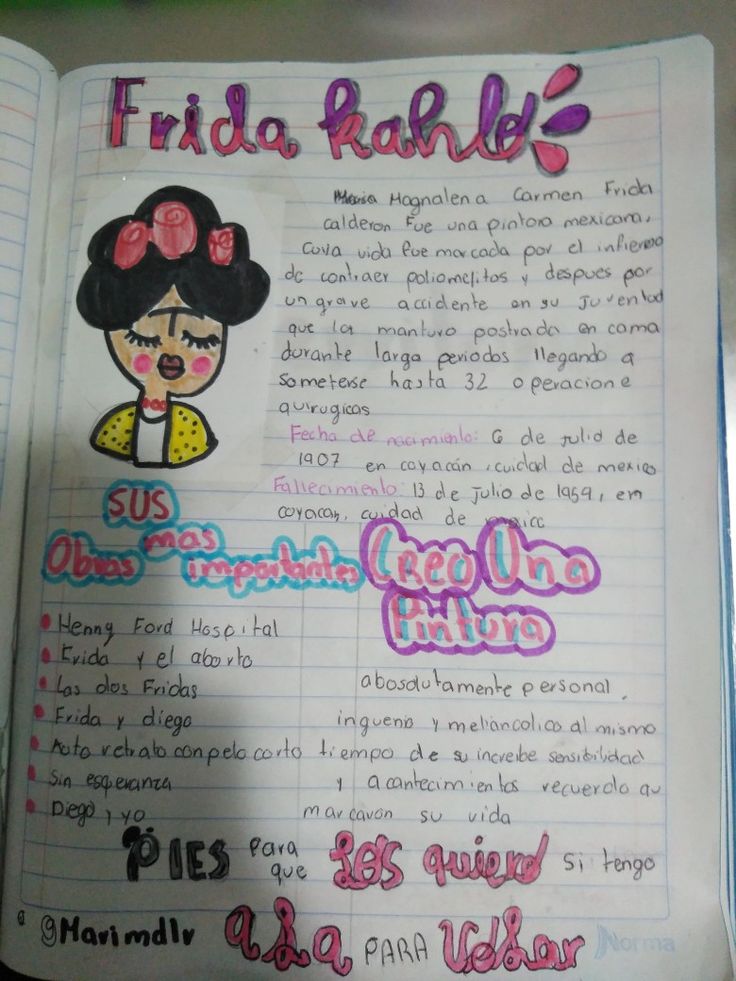 Frida Kahlo
Maria Magnalena Carmen Frida
calderon Fue una pintora mexicana,
cuya vida fue marcada por el infierno
de contraer poliomelitos y despues por
un grave accidente en su juventud
que la mantuvo postrada en cama
durante larga periodos llegando a
someterse hasta 32 operacione
quirugicas
Fecha de nacimiento: 6 de julio de
1907 en coyacán, cuidad de mexico
Fallecimiento: 13 de julio de 1959, en
coyacan, cuidad de mexico
SUS
mas
Obras importantes
• Henny Ford Hospital
• Frida y el aborto
• Las dos Fridas
• Frida y diego
• Auto retrato con pelo corto
• Sin esperanza
• Diego y yo
Creo Una
Pintura
abosolutamente personal,
ingueno y melancolico al mismo
tiempo de su increibe sensibilidad
y acantecimientos recuerdo qu
marcavon su vida
PIES para que los quiero si tengo
ala PARA Volar
@Marimdlr
Norma